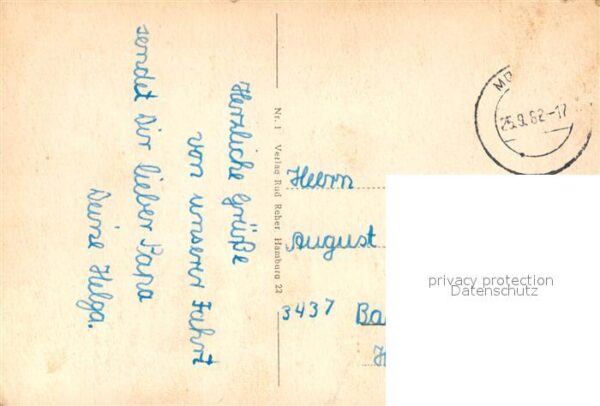 Herzliche Grüße
von unserer Fahrt
sendet Dir lieber Papa
Deine Helga.
Nr. 1 Verlag Rud Reher, Hamburg 22
25.9.62-17
Herrn
August
3437 Ba
H
privacy protection
Datenschutz